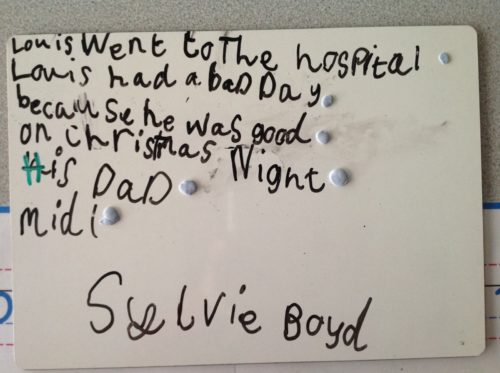 Louis Went to The hospital
Louis had a baD Day
because he was good
on christmas Night
His DaD
midi
Sylvie Boyd